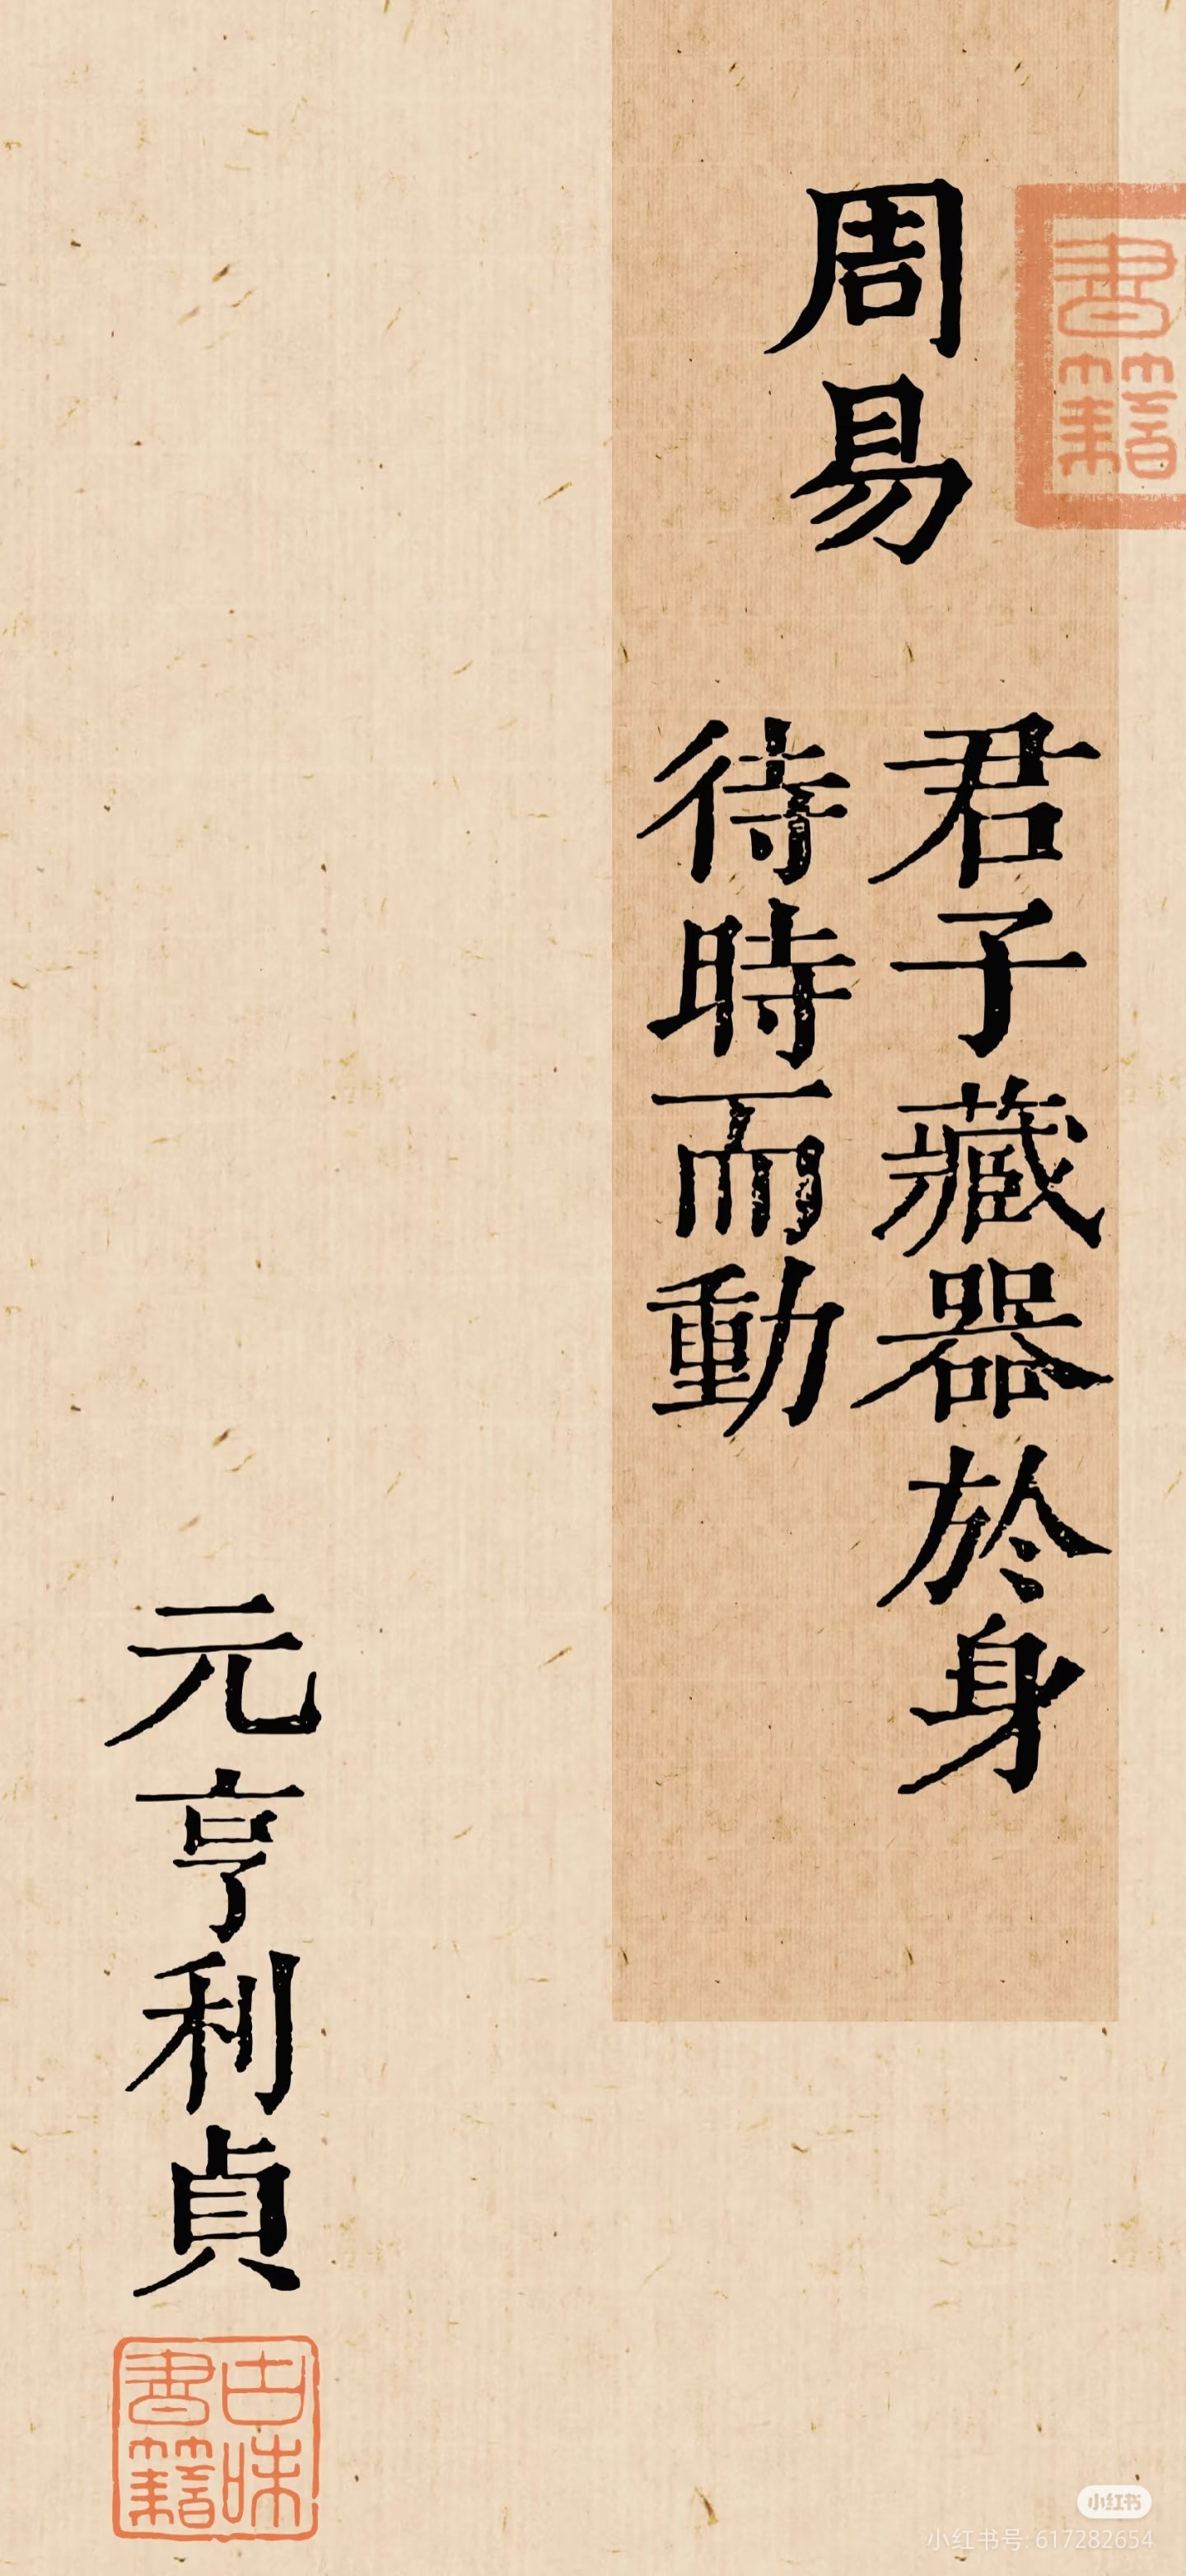 周易
君子藏器於身
待時而動
元亨利貞
書籍
古味書籍
小红书
小红书号: 617282654